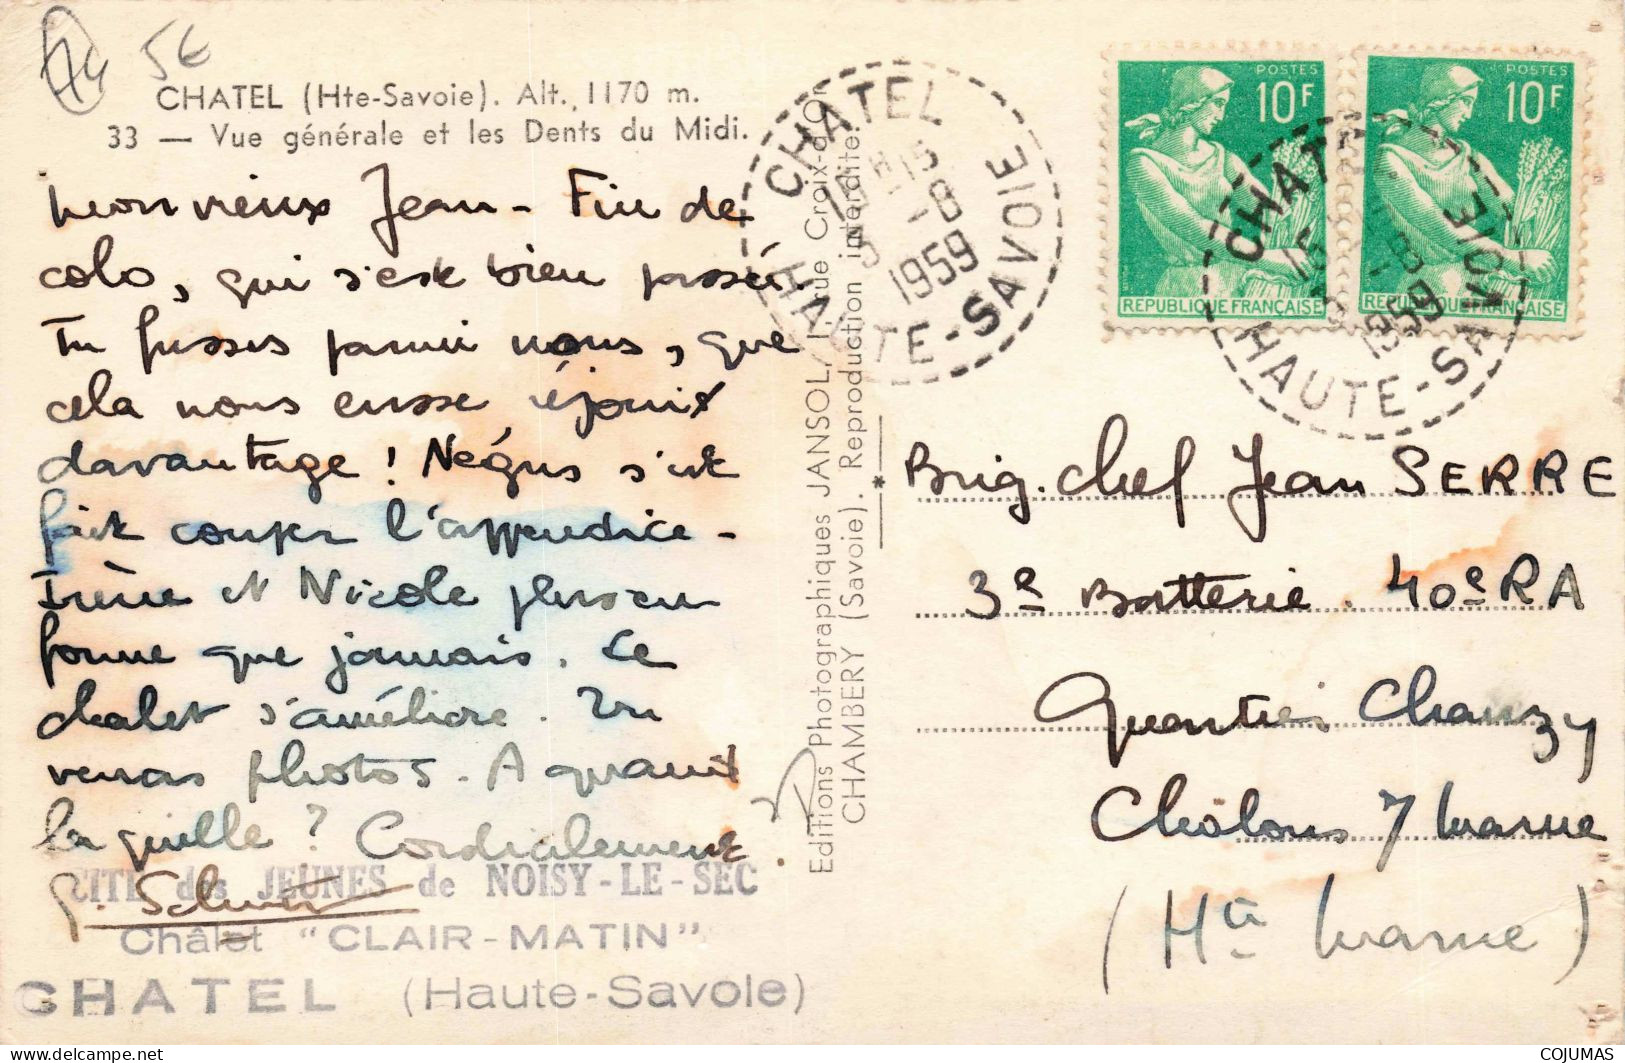 74 5€
CHATEL (Hte-Savoie). Alt. 1170 m.
33 — Vue générale et les Dents du Midi.
Mon vieux Jean - Fin de
colo, qui s'est bien passée.
Tu fusses parmi nous, que
cela nous eusse réjouit
davantage ! Négus s'est
fait couper l'appendice -
Irène et Nicole plus en
forme que jamais. Le
chalet s'améliore. Tu
verras photos. A quand
la quille ? Cordialement
CITÉ des JEUNES de NOISY-LE-SEC
Châlet "CLAIR-MATIN"
CHATEL (Haute-Savoie)
Editions Photographiques JANSOL, 1, rue Croix-d'Or
CHAMBERY (Savoie). Reproduction interdite.
CHATEL
15H15
-8
1959
HAUTE-SAVOIE
POSTES
10F
REPUBLIQUE FRANÇAISE
POSTES
10F
REPUBLIQUE FRANÇAISE
CHATEL
-8
1959
HAUTE-SAVOIE
Brig. Chef Jean SERRE
3e Batterie. 40e RA
Quartier Chanzy
Châlons / Marne
(Hte Marne)
COJUMAS